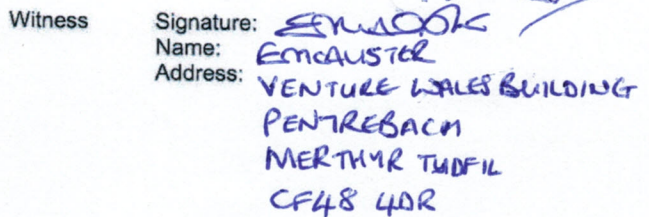 Witness Signature:
Name: EMCALISTER
Address: VENTURE WALES BUILDING
PENTREBACH
MERTHYR TYDFIL
CF48 4DR